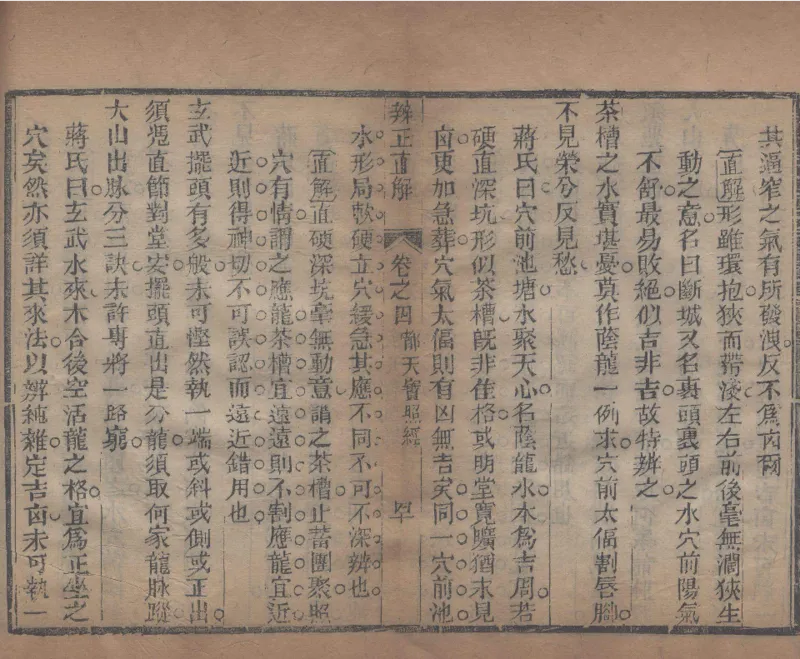 其逼窄之氣有所發洩反不為內爾
直解形雖環抱狹而帶淺左右前後毫無濶狹生
動之意名曰斷城又名裹頭裹頭之水穴前陽氣
不舒最易敗絕似吉非吉故特辨之
茶槽之水實堪憂莫作蔭龍一例求穴前太偪割唇腳
不見榮兮反見愁
蔣氏曰穴前池塘水聚天心名蔭龍水本為吉局若
硬直深坑形似茶槽旣非佳格或明堂寬曠猶未見
凶更加急葬穴氣太偪則有凶無吉矣同一穴前池
辨正直解 卷之四 都天寶照經
水形局軟硬立穴緩急其應不同不可不深辨也
直解直硬深坑毫無動意謂之茶槽止蓄團聚照
穴有情謂之應龍茶槽宜遠遠則不割應龍宜近
近則得神切不可誤認而遠近錯用也
玄武擺頭有多般未可慳然執一端或斜或側或正出
須凭直節對堂安擺頭直出是分龍須取何家龍脉蹤
大山出脉分三訣未許專將一路窮
蔣氏曰玄武水來木合後空活龍之格宜爲正坐之
穴矣然亦須詳其來法以辨純雜定吉凶未可執一